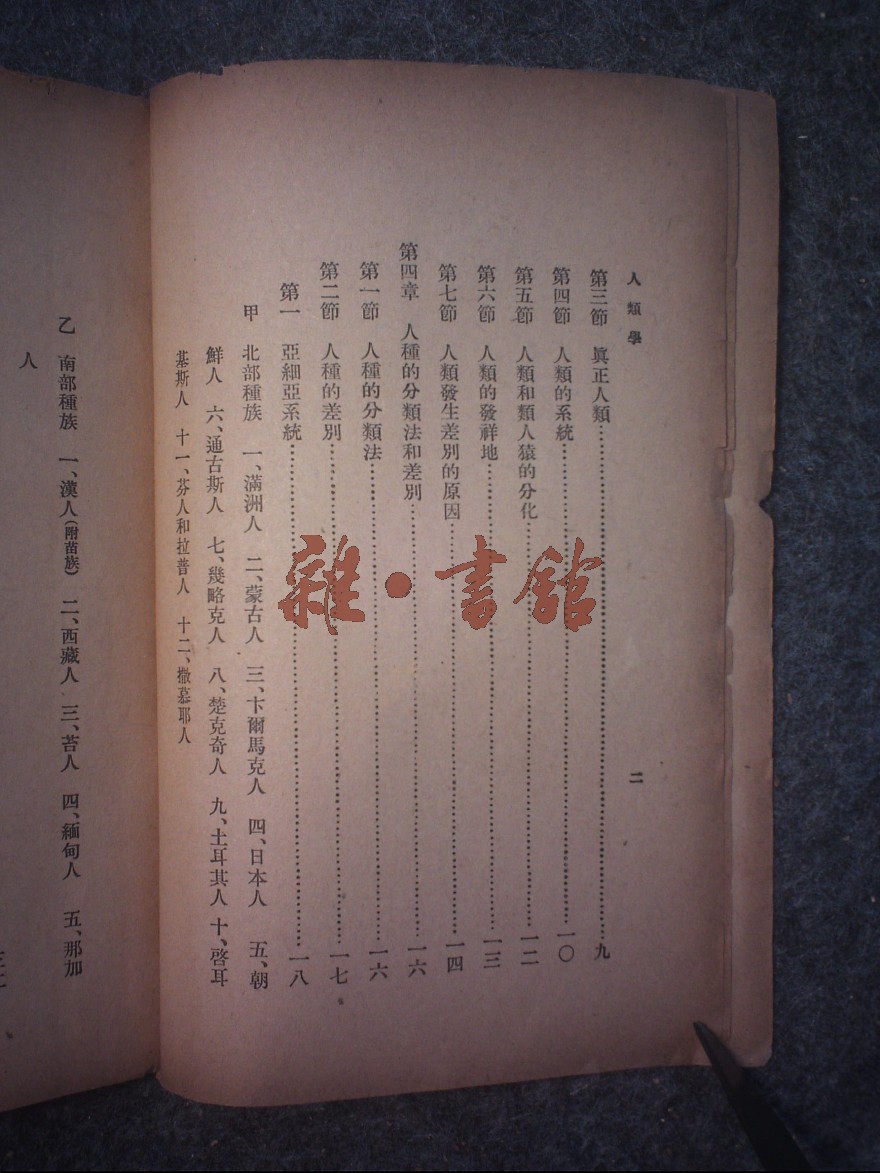 人類學
二
第三節 眞正人類……九
第四節 人類的系統……一〇
第五節 人類和類人猿的分化……一二
第六節 人類的發祥地……一三
第七節 人類發生差別的原因……一四
第四章 人種的分類法和差別……一六
第一節 人種的分類法……一六
第二節 人種的差別……一七
第一 亞細亞系統……一八
甲 北部種族 一、滿洲人 二、蒙古人 三、卞爾馬克人 四、日本人 五、朝
鮮人 六、通古斯人 七、幾略克人 八、楚克奇人 九、土耳其人 十、啓耳
基斯人 十一、芬人和拉普人 十二、撒慕耶人
乙 南部種族 一、漢人(附苗族) 二、西藏人 三、苔人 四、緬甸人 五、那加
人
雜·書館